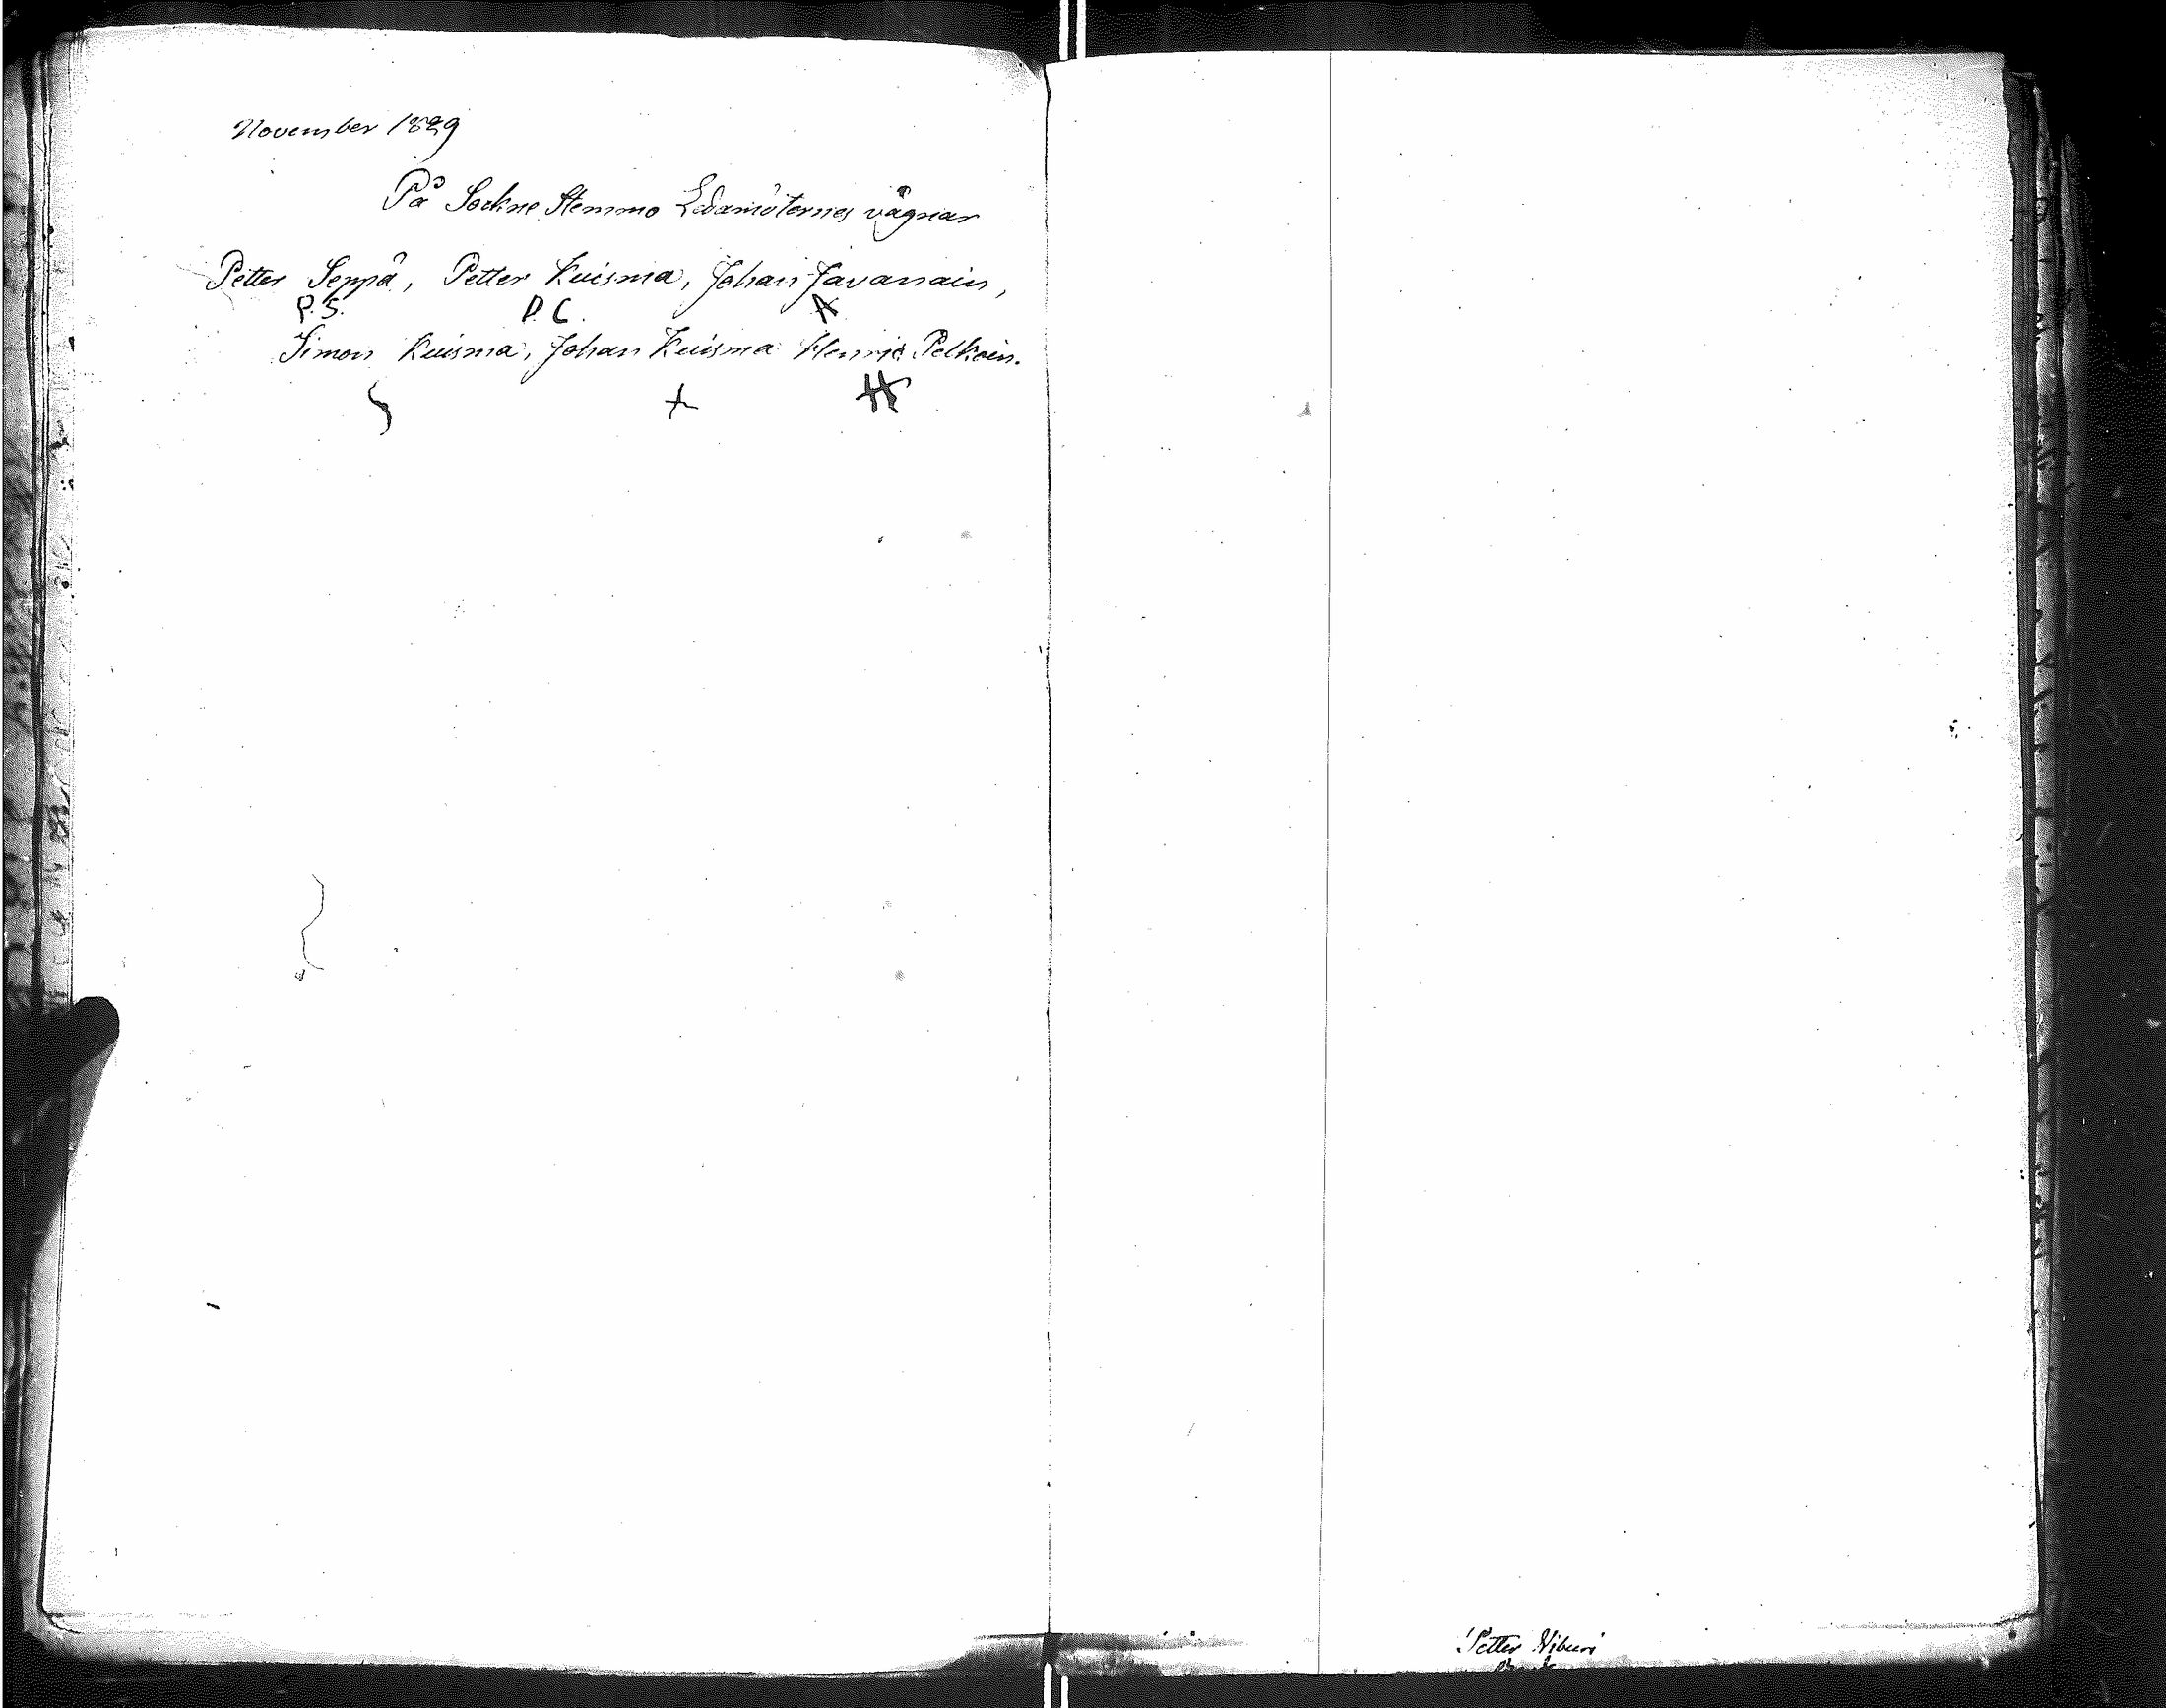 November 1829
På Sockne Stemmo Ledamöternes vägnar
Petter Seppä, Petter Kuisma, Johan Javanain,
P. S. P. C.
Simon Kuisma, Johan Kuisma Henric Pelkoin.
H
Petter